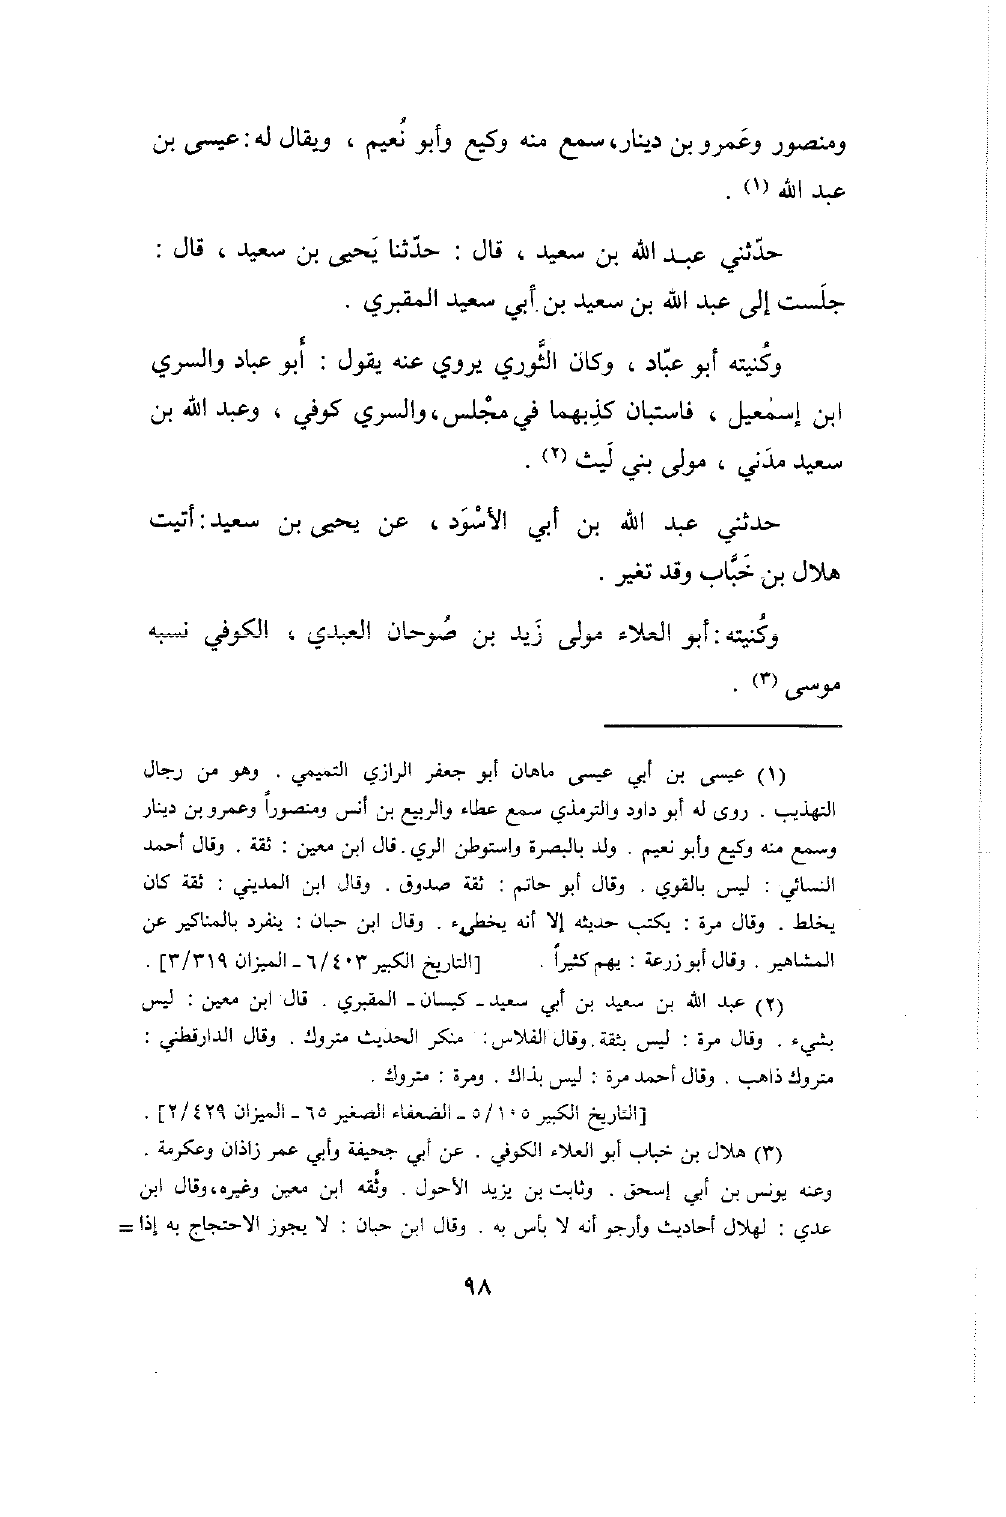 ومنصور وعَمرو بن دينار، سمع منه وكيع وأبو نُعيم ، ويقال له : عيسى بن
عبد الله (١) .
حدّثني عبد الله بن سعيد ، قال : حدّثنا يَحيى بن سعيد ، قال :
جلَست إلى عبد الله بن سعيد بن أبي سعيد المقبري .
وكُنيته أبو عبّاد ، وكان الثَّوري يروي عنه يقول : أَبو عباد والسري
ابن إسمٰعيل ، فاستبان كذِبهما في مجْلس، والسري كوفي ، وعبد الله بن
سعيد مدَني ، مولى بني لَيث (٢) .
حدثني عبد الله بن أبي الأسْوَد ، عن يحيى بن سعيد : أتيت
هلال بن خَبَّاب وقد تغير .
وكُنيته : أبو العلاء مولى زَيد بن صُوحان العبدي ، الكوفي نسبه
موسى (٣) .
(١) عيسى بن أبي عيسى ماهان أبو جعفر الرازي التميمي . وهو من رجال
التهذيب . روى له أبو داود والترمذي سمع عطاء والربيع بن أنس ومنصوراً وعمرو بن دينار
وسمع منه وكيع وأبو نعيم . ولد بالبصرة واستوطن الري . قال ابن معين : ثقة . وقال أحمد
النسائي : ليس بالقوي . وقال أبو حاتم : ثقة صدوق . وقال ابن المديني : ثقة كان
يخلط . وقال مرة : يكتب حديثه إلا أنه يخطىء . وقال ابن حبان : ينفرد بالمناكير عن
المشاهير . وقال أبو زرعة : يهم كثيراً . [التاريخ الكبير ٦/٤٠٣ ـ الميزان ٣/٣١٩] .
(٢) عبد الله بن سعيد بن أبي سعيد ـ كيسان ـ المقبري . قال ابن معين : ليس
بشيء . وقال مرة : ليس بثقة . وقال الفلاس : منكر الحديث متروك . وقال الدارقطني :
متروك ذاهب . وقال أحمد مرة : ليس بذاك . ومرة : متروك .
[التاريخ الكبير ٥/١٠٥ ـ الضعفاء الصغير ٦٥ ـ الميزان ٢/٤٢٩] .
(٣) هلال بن خباب أبو العلاء الكوفي . عن أبي جحيفة وأبي عمر زاذان وعكرمة .
وعنه يونس بن أبي إسحق . وثابت بن يزيد الأحول . وثّقه ابن معين وغيره، وقال ابن
عدي : لهلال أحاديث وأرجو أنه لا بأس به . وقال ابن حبان : لا يجوز الاحتجاج به إذا =
٩٨